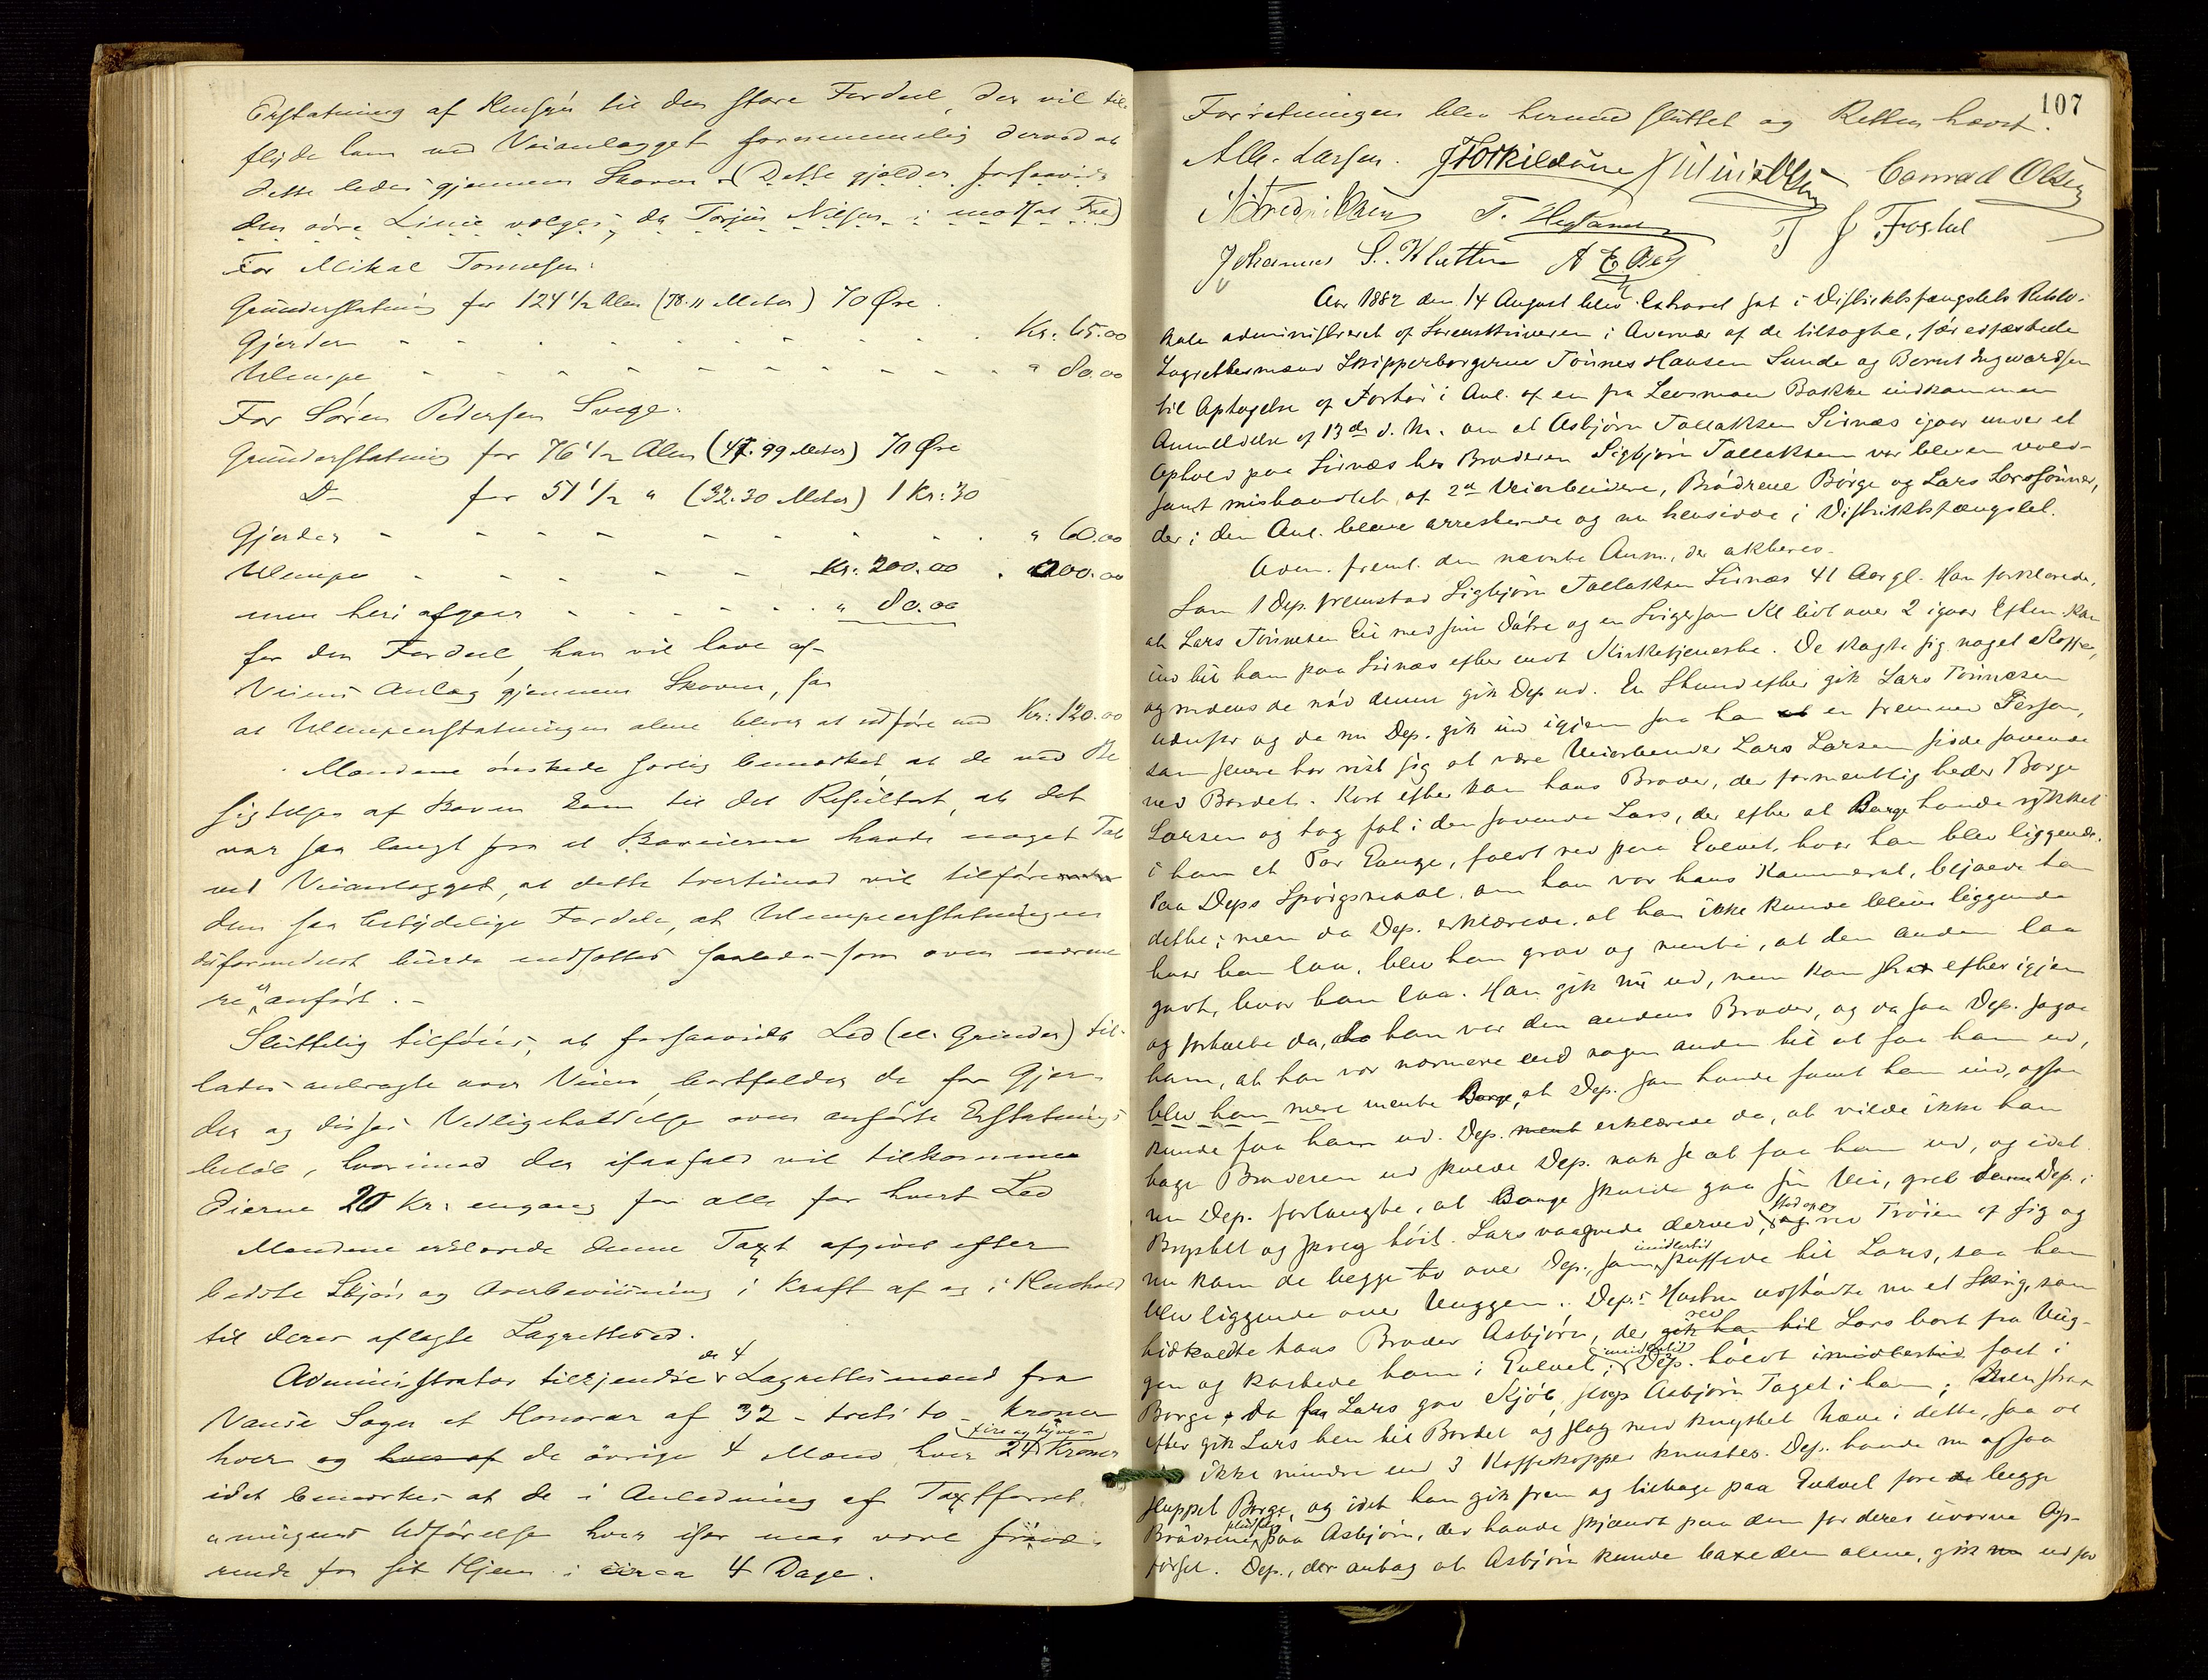 Erstatning af Hensyn til den store Fordeel, der vil til-
flyde ham ved Veianlægget fornemmelig derved at
dette ledes gjennem Skoven. (Dette gjælder forsaavidt
den øvre Linie vælges, da Torjus Nilsen i modsat Fald)
For Mikal Tønnesen:
Grunderstatning for 124 1/2 Alen (78.11 Meter) 70 Øre.
Gjerder - - - - - - - - Kr: 65.00
Ulempe - - - - - - - - " 80.00
For Søren Pedersen Svege.
Grunderstatning for 76 1/2 Alen (47.99 Meter) 70 Øre
Do for 51 1/2 " (32.30 Meter) 1 Kr: 30
Gjerder - - - - - - - - " 60.00
Ulempe - - - - - - Kr. 200.00 . 200.00
men heri afgaar - - - - - - " 80.00
for den Fordeel, han vil have af
Veiens Anlæg gjennem Skoven, saa
at Ulempeerstatningen alene bliver at udføre med Kr: 120.00
Mændene ønskede særlig bemærket, at de ved Be-
sigtelse af Skoven kom til det Resultat, at det
var saa langt fra at Skoveierne havde noget Tab
ved Veianlægget, at dette tvertimod vil tilføre
dem saa betydelige Fordele, at Ulempeerstatningen
desformedelst burde nedsættes saaledes som oven nærme-
re er anført. -
Sluttelig tilføies, at forsaavidt Led (el. Grinder) til-
lades anbragte over Veien, bortfalder de for Gjer-
der og disses Vedligeholdelse oven anførte Erstatnings-
beløb, hvorimod der isaafald vil tilkomme
Eierne 20 Kr: engang for alle for hvert Led
Mændene erklærede denne Taxt afgivet efter
bedste Skjøn og Overbeviisning i Kraft af og i Henhold
til deres aflagte Lagrettesed.
de 4
Administrator tilkjendte Lagrettesmænd fra
Vanse Sogn et Honorar af 32 - treti to - Kroner
fire og tyve -
hver og hver af de øvrige 4 Mænd hver 24 Kroner
idet bemærkes at de i Anledning af Taxtforret-
ningens Udførelse hver især maa være fravæ-
rende fra sit Hjem i circa 4 Dage.
107
Forretningen blev hermed sluttet og Retten hævet.
Alb. Larsen. J Torkildsen Conrad Olsen
N Fredriksen T. Hegland T J Fostel
Johannes S. Kletten A E Aas
Aar 1882 den 14 August blev Extraret sat i Distriktsfængslets Retslo-
kale administreret af Sorenskriveren i Overvær af de tilsagte, før edfæstede
Lagrettesmænd Skipperborgerne Tønnes Hansen Sunde og Bernt Ingwardsen
til Optagelse af Forhør i Anl. af en fra Lensmand Bakke indkommen
Anmeldelse af 13de d. M. om at Asbjørn Tallaksen Sirnæs igaar under et
Ophold paa Sirnæs hos Broderen Sigbjørn Tallaksen var bleven vold-
somt mishandlet af 2de Veiarbeidere, Brødrene Børge og Lars Larssønner,
der i den Anl. bleve arresterede og nu hensidde i Distriktsfængslet.
Adm. freml. den nævnte Anm., der akteres.
Som 1 Dep. fremstod Sigbjørn Tallaksen Sirnæs 41 Aar gl. Han forklarede,
at Lars Tønnesen Lie med sin Datter og en Svigersøn Kl lidt over 2 igaar Efterm. kom
ind til ham paa Sirnæs efter endt Kirketjeneste. De kogte sig noget Kaffe,
og medens de nød denne gik Dep ud. En Stund efter gik Lars Tønnesen
udenfor og da nu Dep. gik ind igjen saa han at en fremmed Person,
som senere har vist sig at være Veiarbeider Lars Larsen sidde sovende
ved Bordet. Kort efter kom hans Broder, der formentlig heder Børge
Larsen og tog fat i den sovende Lars, der efter at Børge havde rykket
i ham et Par Gange, faldt ned paa Gulvet, hvor han blev liggende.
Paa Deps Spørgsmaal, om han var hans Kammerat, bejaede han
dette; men da Dep. erklærede, at han ikke kunde blive liggende
hvor han laa, blev han grov og mente, at den anden laa
godt, hvor han laa. Han gik nu ud, men kom strax efter igjen
og fortalte da, at han var den andens Broder, og da saa Dep. sagde
ham, at han var nærmere end nogen anden til at faa ham ud,
blev han mere mente Børge, at Dep. som havde faaet ham ind, ogsaa
kunde faa ham ud. Dep. ment erklærede da, at vilde ikke han
tage Broderen ud skulde Dep. nok se at faa ham ud, og idet
nu Dep. forlangte, at Børge skulde gaa sin Vei, greb denne Dep. i
stod op
Brystet og skreg høit. Lars vaagnede derved, og rev Trøien af sig og
imidlertid
nu kom de begge to over Dep. som puffede til Lars, saa han
blev liggende over Vuggen. Deps Hustru udstødte nu et Skrig, som
rev
hidkaldte hans Broder Asbjørn, der gik han til Lars bort fra Vug-
imidlertid
gen og kastede ham i Gulvet; Dep. holdt imidlertid fast i
Børge. Da Lars gav Kjøb, slap Asbjørn Taget i ham; Men strax
efter gik Lars hen til Bordet og slog med knyttet Næve i dette, saa at
ikke mindre end 3 Kaffekopper knustes. Dep. havde nu ogsaa
sluppet Børge, og idet han gik frem og tilbage paa Gulvet fore de begge
pludselig
Brødrene paa Asbjørn, der havde skjændt paa dem for deres uvorne Op-
førsel. Dep., der antog at Asbjørn kunde baxe dem alene, gik nu ud for